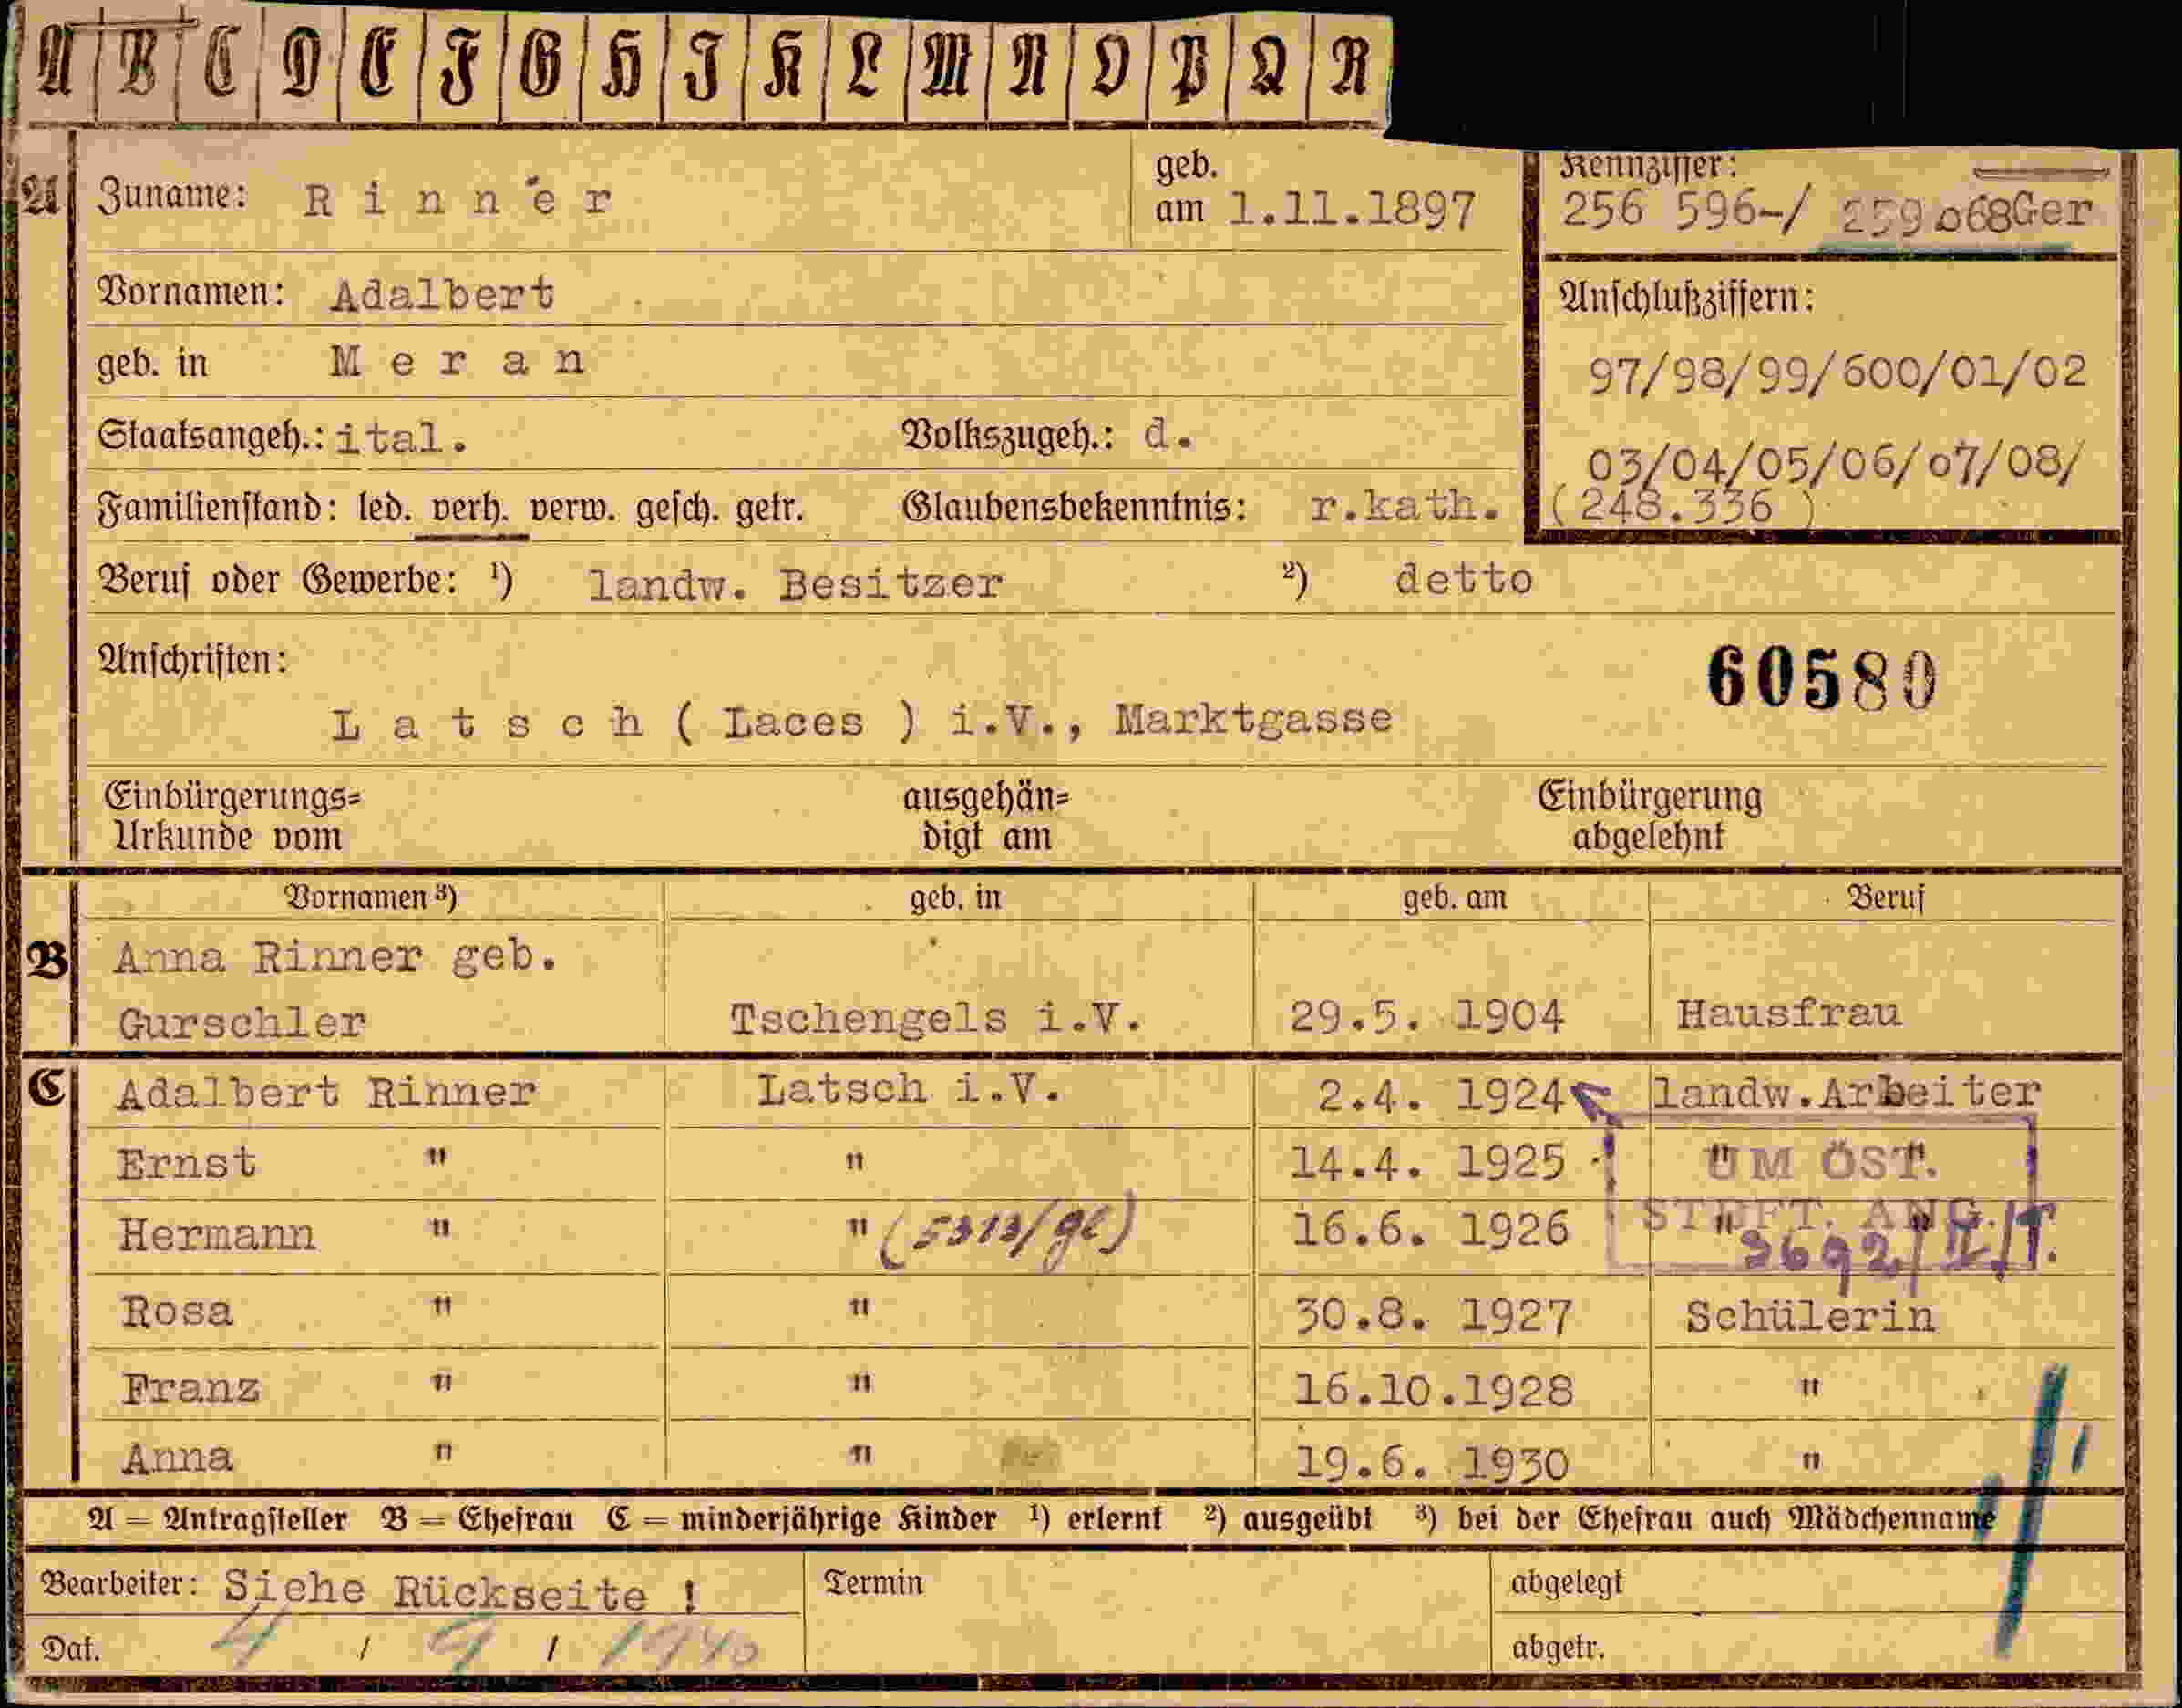 A B C D E F G H I K L M N O P Q R
A Zuname: Rinner geb. am 1.11.1897
Kennziffer: 256 596-/ 259 068Ger
Vornamen: Adalbert
Anschlußziffern:
geb. in Meran
97/98/99/600/01/02
Staatsangeh.: ital. Volkszugeh.: d.
03/04/05/06/07/08/
Familienstand: led. verh. verw. gesch. getr. Glaubensbekenntnis: r.kath.
(248.336)
Beruf oder Gewerbe: ¹) landw. Besitzer ²) detto
Anschriften:
60580
Latsch ( Laces ) i.V., Marktgasse
Einbürgerungs= ausgehän= Einbürgerung
Urkunde vom digt am abgelehnt
Vornamen ³) geb. in geb. am Beruf
B Anna Rinner geb.
Gurschler Tschengels i.V. 29.5. 1904 Hausfrau
C Adalbert Rinner Latsch i.V. 2.4. 1924 landw.Arbeiter
Ernst " " 14.4. 1925 "  "
UM ÖST.
Hermann " " (5313/gl) 16.6. 1926 " "
STBFT. ANG.
3692/II/T.
Rosa " " 30.8. 1927 Schülerin
Franz " " 16.10.1928 "
Anna " " 19.6. 1930 "
A = Antragsteller B = Ehefrau C = minderjährige Kinder ¹) erlernt ²) ausgeübt ³) bei der Ehefrau auch Mädchenname
Bearbeiter: Siehe Rückseite ! Termin abgelegt
Dat. 4 / 9 / 1940 abgetr.